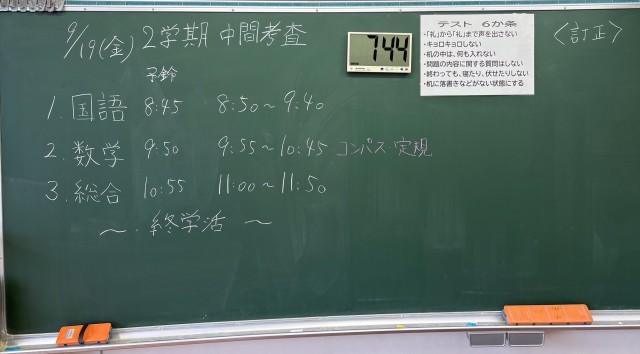 9/19(金) 2学期 中間考査
予鈴
1. 国語 8:45 8:50~9:40
2. 数学 9:50 9:55~10:45 コンパス・定規
3. 総合 10:55 11:00~11:50
~・終学活 ~
744
テスト 6か条
・「礼」から「礼」まで声を出さない
・キョロキョロしない
・机の中は、何も入れない
・問題の内容に関する質問はしない
・終わっても、寝たり、伏せたりしない
・机に落書きなどがない状態にする
〈訂正〉